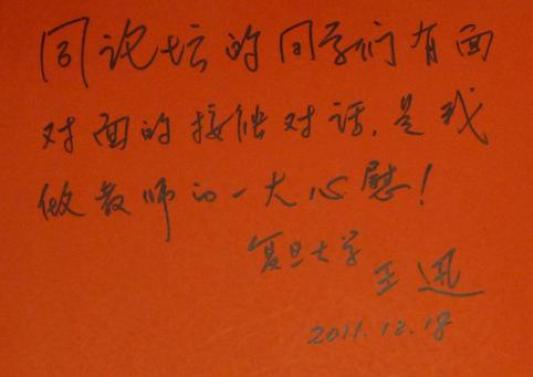 同论坛的同学们有面
对面的接触对话,是我
做教师的一大心慰!
复旦大学
王迅
2011.12.18